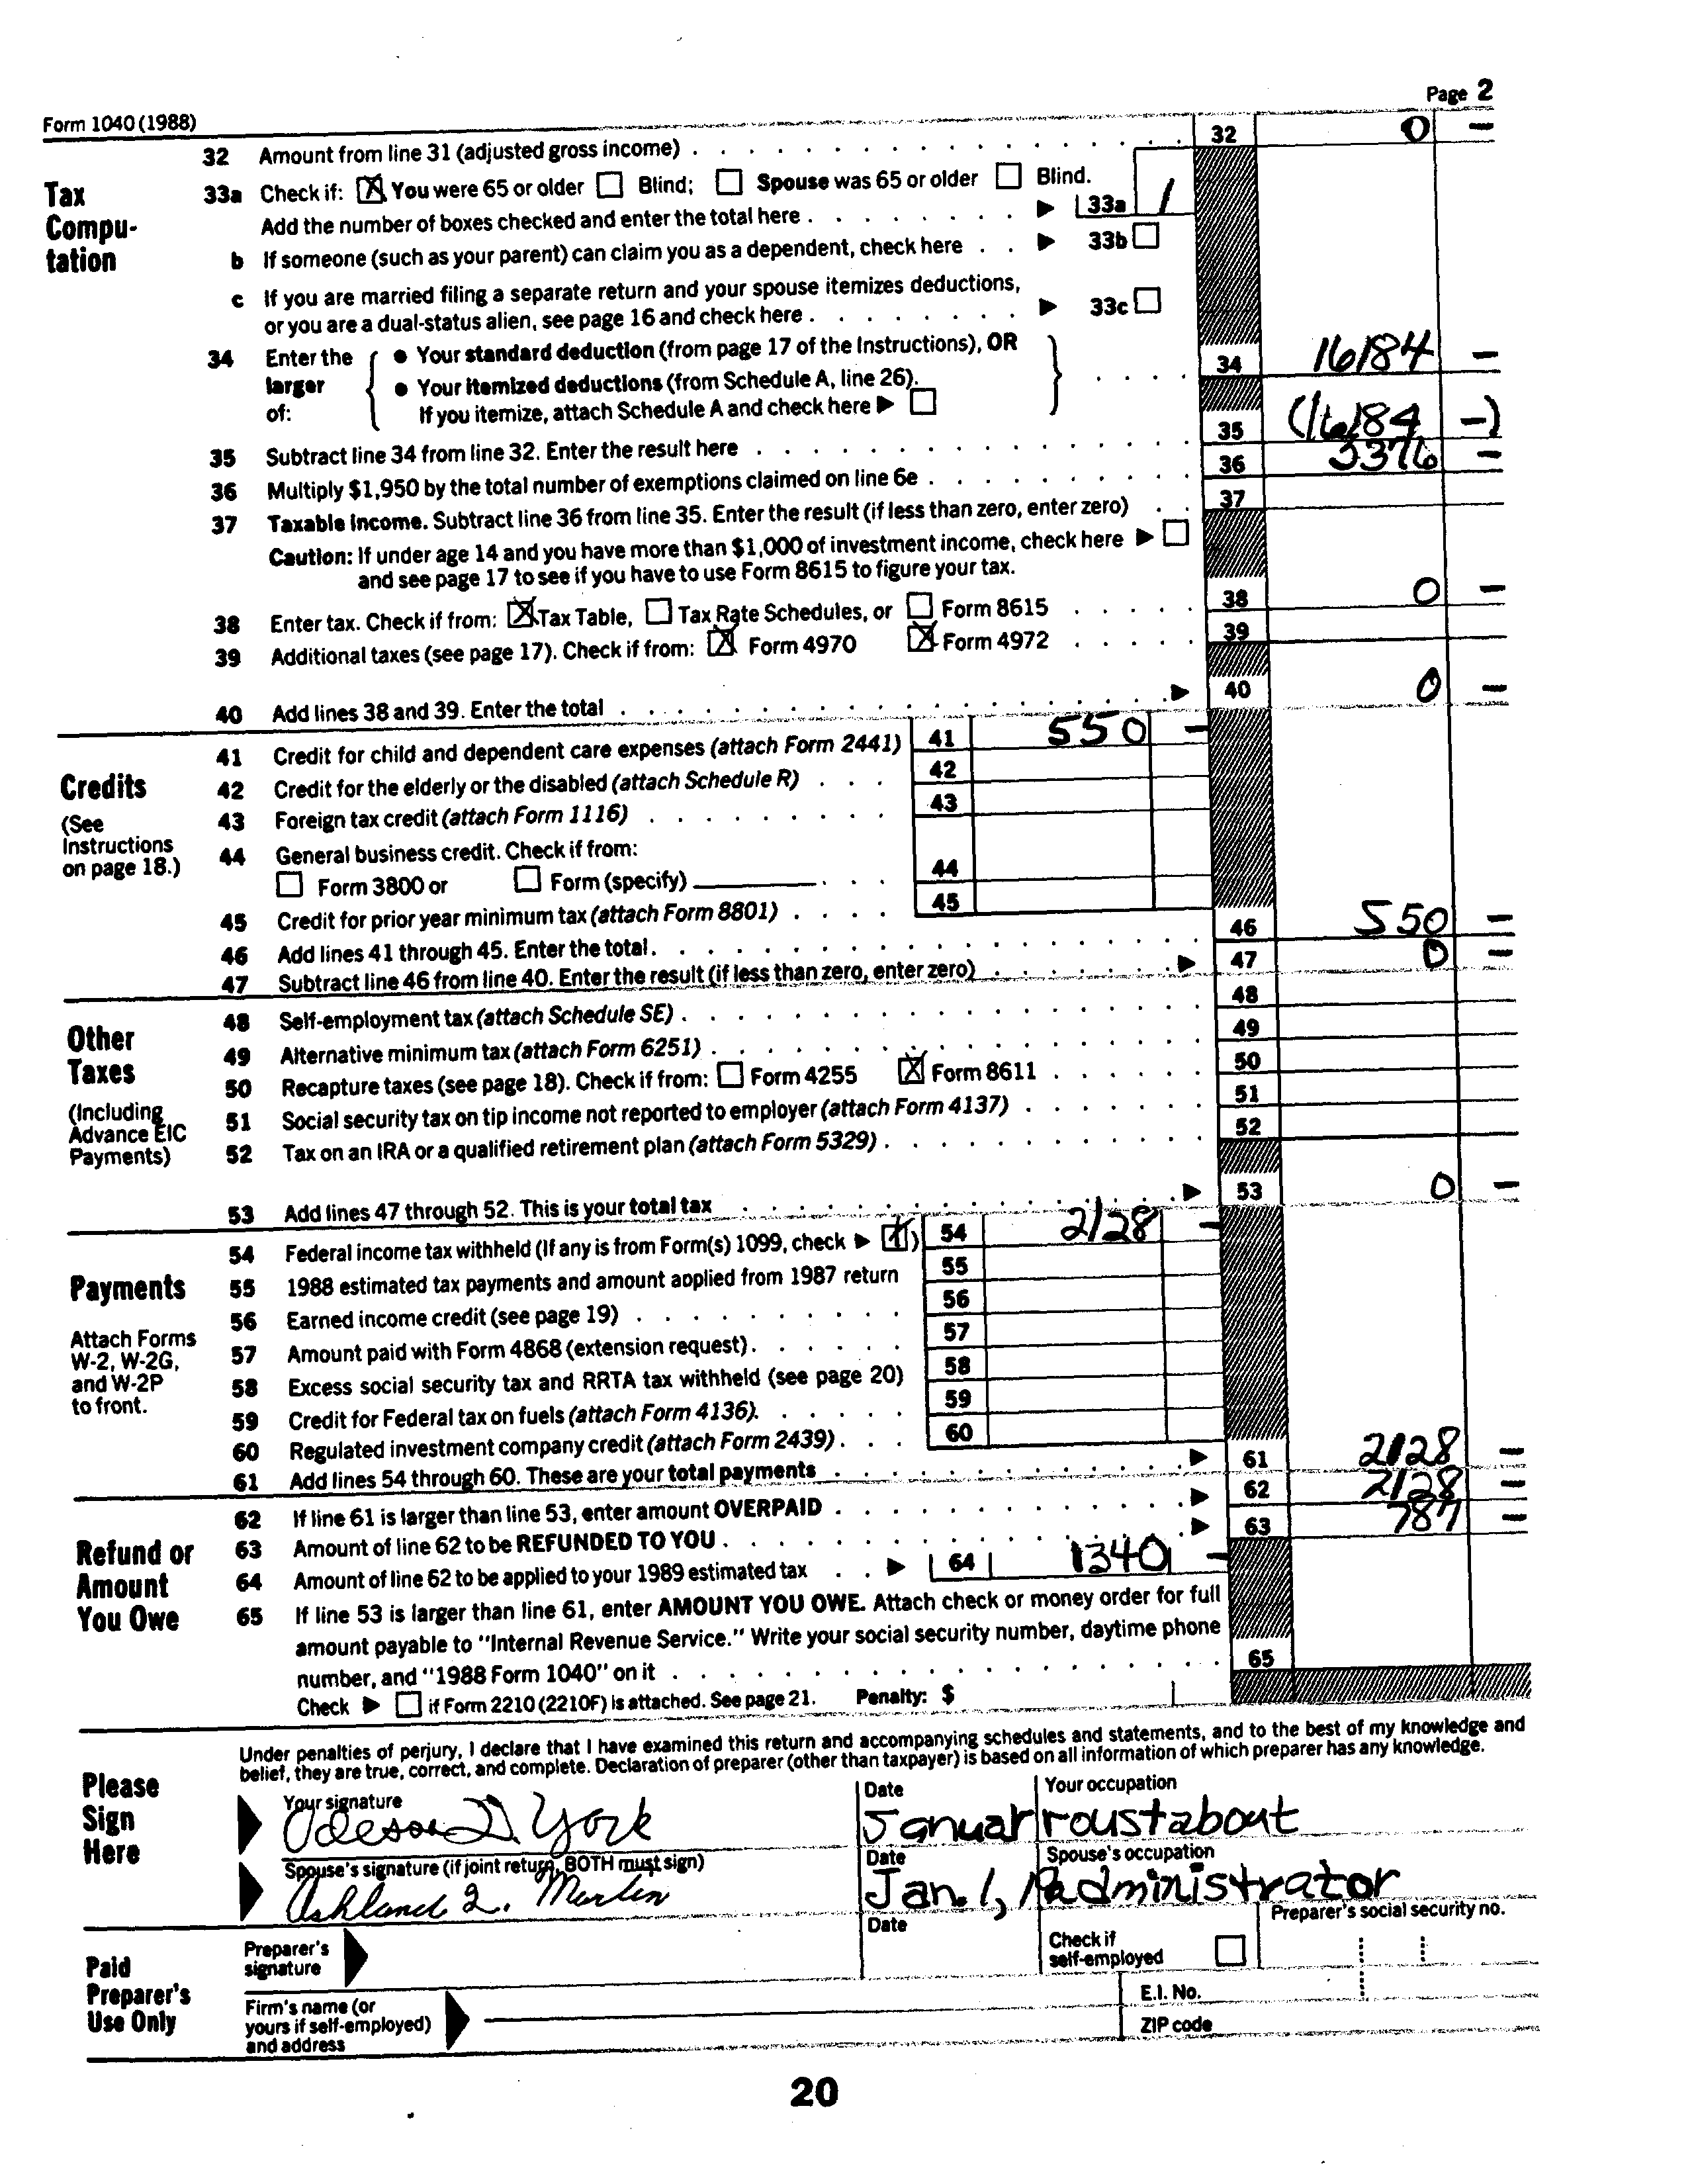 Form 1040 (1988) Page 2
Tax Computation
32 Amount from line 31 (adjusted gross income) 32 0 —
33a Check if: [X] You were 65 or older [ ] Blind; [ ] Spouse was 65 or older [ ] Blind.
Add the number of boxes checked and enter the total here ▶ 33a 1
b If someone (such as your parent) can claim you as a dependent, check here ▶ 33b [ ]
c If you are married filing a separate return and your spouse itemizes deductions,
or you are a dual-status alien, see page 16 and check here ▶ 33c [ ]
34 Enter the larger of:
● Your standard deduction (from page 17 of the Instructions), OR
● Your itemized deductions (from Schedule A, line 26).
If you itemize, attach Schedule A and check here ▶ [ ]
34 16184 —
35 Subtract line 34 from line 32. Enter the result here 35 (16184 —)
36 Multiply $1,950 by the total number of exemptions claimed on line 6e 36 3376 —
37 Taxable income. Subtract line 36 from line 35. Enter the result (if less than zero, enter zero) 37
Caution: If under age 14 and you have more than $1,000 of investment income, check here ▶ [ ]
and see page 17 to see if you have to use Form 8615 to figure your tax.
38 Enter tax. Check if from: [X] Tax Table, [ ] Tax Rate Schedules, or [ ] Form 8615 38 0 —
39 Additional taxes (see page 17). Check if from: [X] Form 4970 [X] Form 4972 39
40 Add lines 38 and 39. Enter the total ▶ 40 0 —
Credits
(See Instructions on page 18.)
41 Credit for child and dependent care expenses (attach Form 2441) 41 550 —
42 Credit for the elderly or the disabled (attach Schedule R) 42
43 Foreign tax credit (attach Form 1116) 43
44 General business credit. Check if from:
[ ] Form 3800 or [ ] Form (specify) 44
45 Credit for prior year minimum tax (attach Form 8801) 45
46 Add lines 41 through 45. Enter the total 46 550 —
47 Subtract line 46 from line 40. Enter the result (if less than zero, enter zero) ▶ 47 0 —
Other Taxes
(Including Advance EIC Payments)
48 Self-employment tax (attach Schedule SE) 48
49 Alternative minimum tax (attach Form 6251) 49
50 Recapture taxes (see page 18). Check if from: [ ] Form 4255 [X] Form 8611 50
51 Social security tax on tip income not reported to employer (attach Form 4137) 51
52 Tax on an IRA or a qualified retirement plan (attach Form 5329) 52
53 Add lines 47 through 52. This is your total tax ▶ 53 0 —
Payments
Attach Forms W-2, W-2G, and W-2P to front.
54 Federal income tax withheld (If any is from Form(s) 1099, check ▶ [X]) 54 2128 —
55 1988 estimated tax payments and amount applied from 1987 return 55
56 Earned income credit (see page 19) 56
57 Amount paid with Form 4868 (extension request) 57
58 Excess social security tax and RRTA tax withheld (see page 20) 58
59 Credit for Federal tax on fuels (attach Form 4136) 59
60 Regulated investment company credit (attach Form 2439) 60
61 Add lines 54 through 60. These are your total payments ▶ 61 2128 —
Refund or Amount You Owe
62 If line 61 is larger than line 53, enter amount OVERPAID ▶ 62 2128 —
63 Amount of line 62 to be REFUNDED TO YOU ▶ 63 787 —
64 Amount of line 62 to be applied to your 1989 estimated tax ▶ 64 1340 —
65 If line 53 is larger than line 61, enter AMOUNT YOU OWE. Attach check or money order for full
amount payable to "Internal Revenue Service." Write your social security number, daytime phone
number, and "1988 Form 1040" on it 65
Check ▶ [ ] if Form 2210 (2210F) is attached. See page 21. Penalty: $
Please Sign Here
Under penalties of perjury, I declare that I have examined this return and accompanying schedules and statements, and to the best of my knowledge and
belief, they are true, correct, and complete. Declaration of preparer (other than taxpayer) is based on all information of which preparer has any knowledge.
Your signature Date Your occupation
Odeson D. York Januar roustabout
Spouse's signature (if joint return, BOTH must sign) Date Spouse's occupation
Ashland Q. Merlin Jan. 1, administrator
Paid Preparer's Use Only
Preparer's signature Date Check if self-employed [ ] Preparer's social security no.
Firm's name (or yours if self-employed) and address
E.I. No.
ZIP code
20